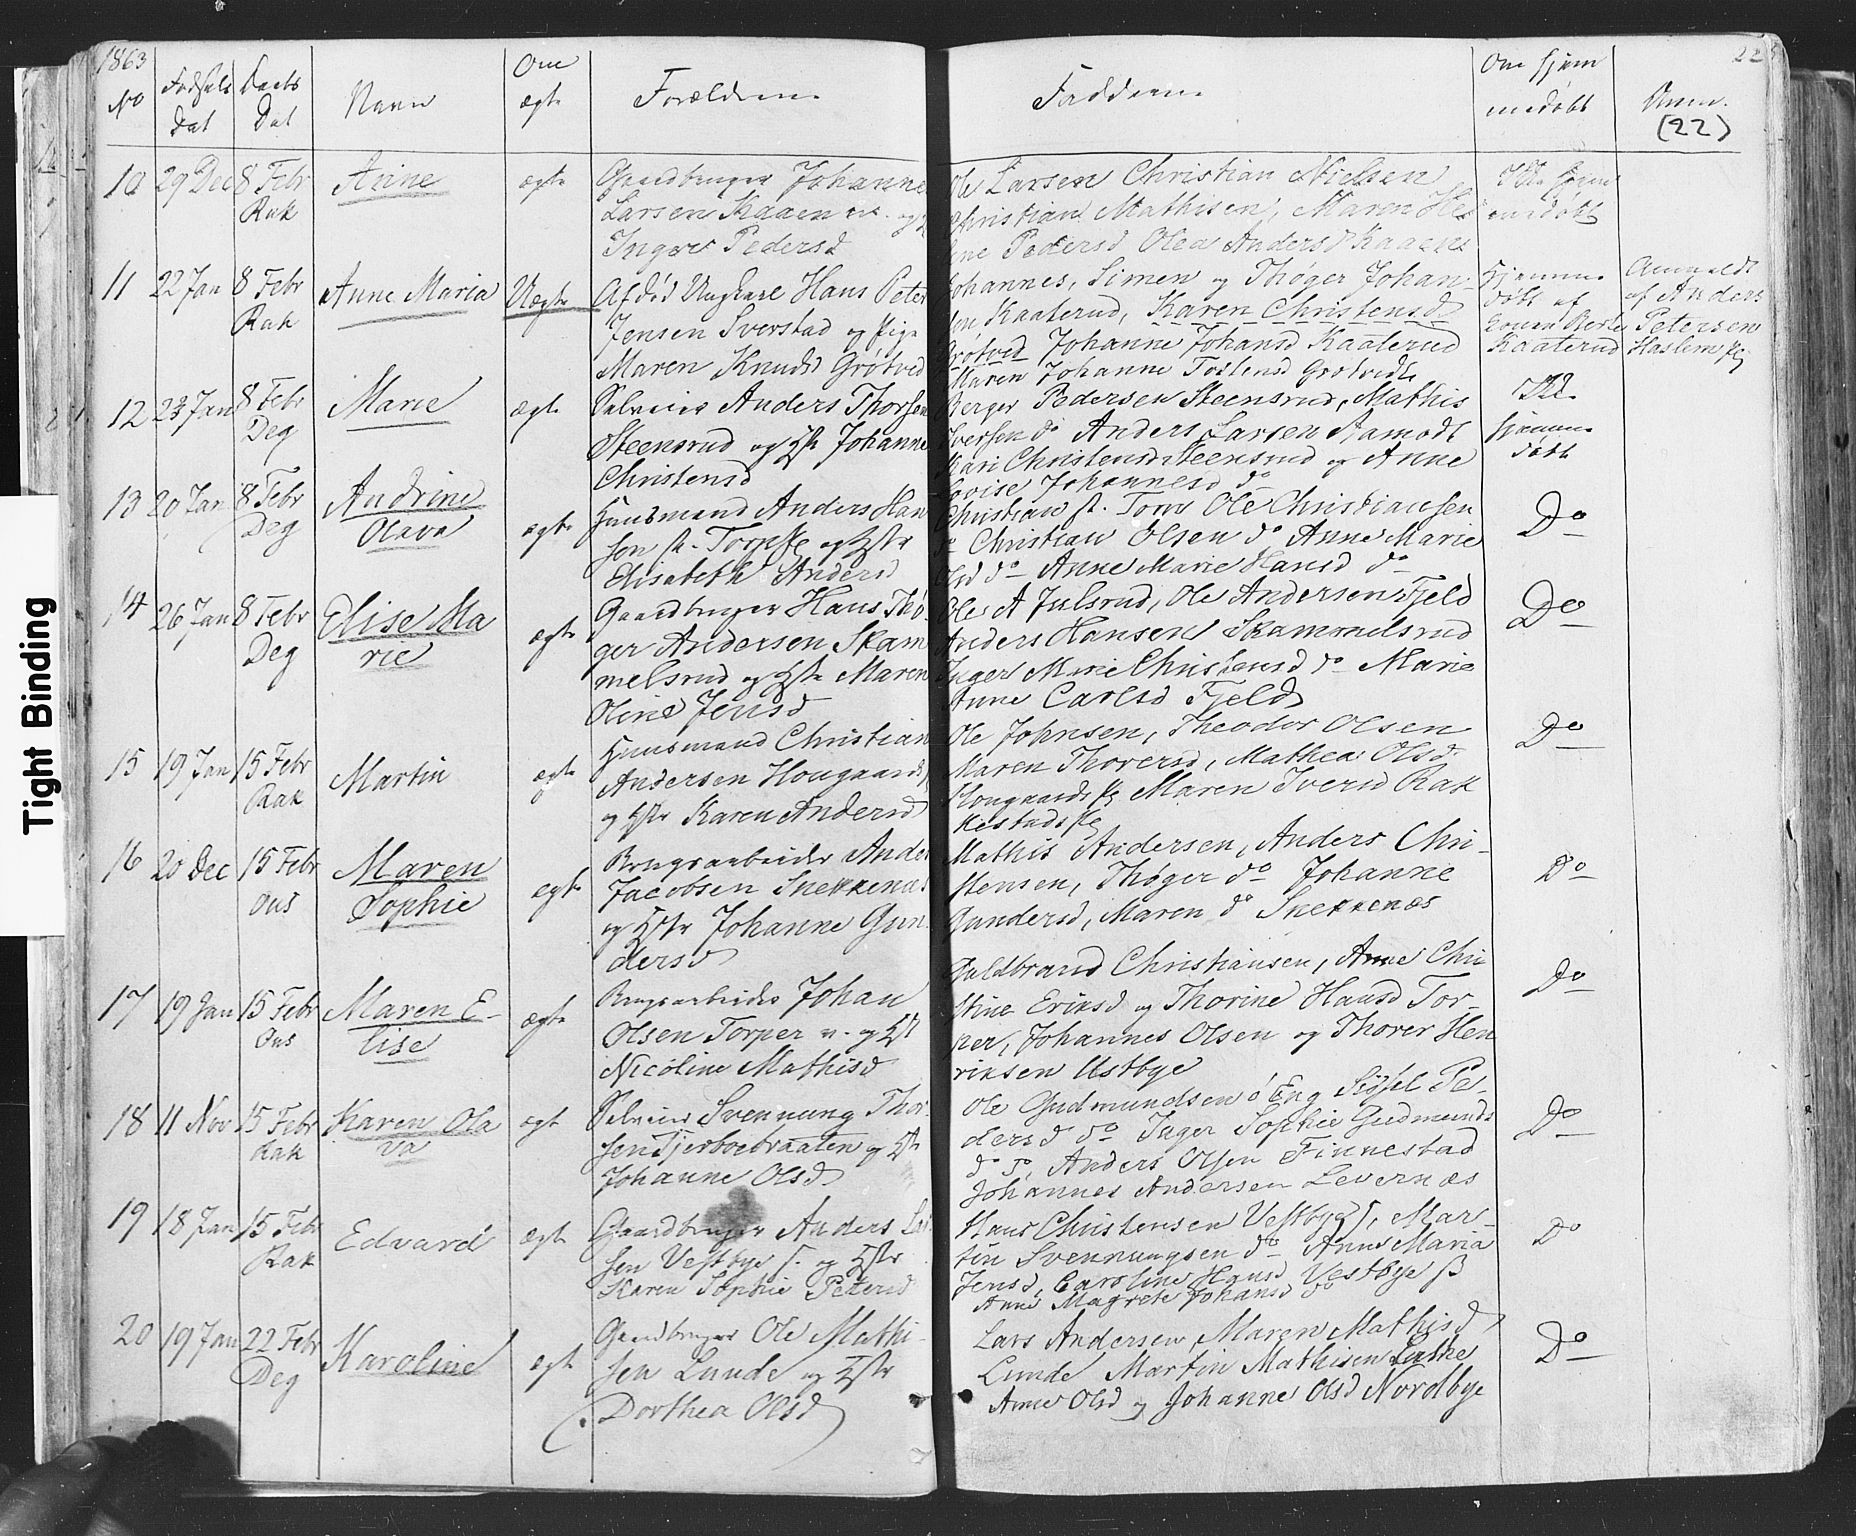 1863
No
Fødsels
Dat
Daabs
Dat
Navn
Om
ægte
Forældrene
Fadderne
Om hjem
medøbt
Anm.
22
(22)
10
29 Dec
8 Febr
Rak
Anne
ægte
Gaardbruger Johannes
Larsen Kaaen og
Inger Pedersd
Ole Larsen Christian Nielsen
Christian Mathisen, Maren He
ne Pedersd Olea Andersd Kaaen
Ikke hjem
medøbt
11
22 Jan
8 Febr
Rak
Anne Maria
Uægte
Afdød Ungkarl Hans Peter
Jensen Sverstad og Pige
Maren Knudsd Grøtved
Johannes, Simen og Thøger Johan-
sen Kaaterud, Karen Christensd
Grøtved Johanne Johansd Kaaterud
Maren Johanne Torstensd Grøtvedt
Hjemme
døbt af
Kaaterud
Anmeldt
af Anders
Petersen
Haslem
12
23 Jan
8 Febr
Deg
Marie
ægte
Selveier Anders Thorsen
Steensrud og Hstr Johanne
Christensd
Berger Pedersen Steensrud, Mathis
Iversen do Anders Larsen Aamodt
Kari Christensd Steensrud og Anne
Lovise Johannesd do
Ikke
hjemme
døbt
13
20 Jan
8 Febr
Deg
Andrine
Olava
ægte
Huusmand Anders Han
sen Torp og Hstr
Elisabeth Andersd
Christian Torp Ole Christiansen
do Christian Olsen do Anne Marie
Olsd do Anne Marie Hansd do
Do
14
26 Jan
8 Febr
Deg
Elise Ma
rie
ægte
Gaardbruger Hans Thø-
ger Andersen Skam
melsrud og Hstr Maren
Oline Jensd
Ole A Julsrud, Ole Andersen Fjeld
Anders Hansen Skammelsrud
Inger Marie Christensd do Marie
Anne Carlsd Fjeld
Do
15
19 Jan
15 Febr
Rak
Martin
ægte
Huusmand Christian
Andersen Hougaards
og Hstr Karen Andersd
Ole Johnsen, Theodor Olsen
Maren Thorersd, Mathea Olsd
Hougaards Maren Iversd Rak
kestads
Do
16
20 Dec
15 Febr
Ons
Maren
Sophie
ægte
Brugsarbeider Anders
Jacobsen Snekkenæs
og Hstr Johanne Gun
dersd
Mathis Andersen, Anders Chri-
stensen, Thøger do Johanne
Gundersd, Maren do Snekkenæs
Do
17
19 Jan
15 Febr
Ons
Maren E-
lise
ægte
Brugsarbeider Johan
Olsen Torper n. og Hst
Nicoline Mathisd
Guldbrand Christiansen, Anne Chri
stine Eriksd og Thorine Hansd Tor-
per, Johannes Olsen og Thorer Hen
riksen Ustbye
Do
18
11 Nov
15 Febr
Rak
Karen Ola
va
ægt
Selveier Svennung Thor-
sen Fjerboebraaten og Hst
Johanne Olsd
Ole Gudmundsen ö Eng Sigsel Pe-
dersd do Inger Sophie Gudmunds
d do, Anders Olsen Finnestad
Johannes Andersen Levernæs
Do
19
18 Jan
15 Febr
Rak
Edvard
ægt
Gaardbruger Anders Lar
sen Vestbye S. og Hstr
Karen Sophie Petersd
Hans Christensen Vestbye S, Mar-
tin Svennungsen do Anne Maria
Jensd, Caroline Hansd Vestbye
Anne Magrete Johansd do
Do
20
19 Jan
22 Febr
Deg
Karoline
ægt
Gaardbruger Ole Mathi-
sen Lunde og Hstr
Dorthea Olsd
Lars Andersen, Maren Mathisd
Lunde Martin Mathisen
Anne Olsd og Johanne Olsd Nordbye
Do
Tight Binding